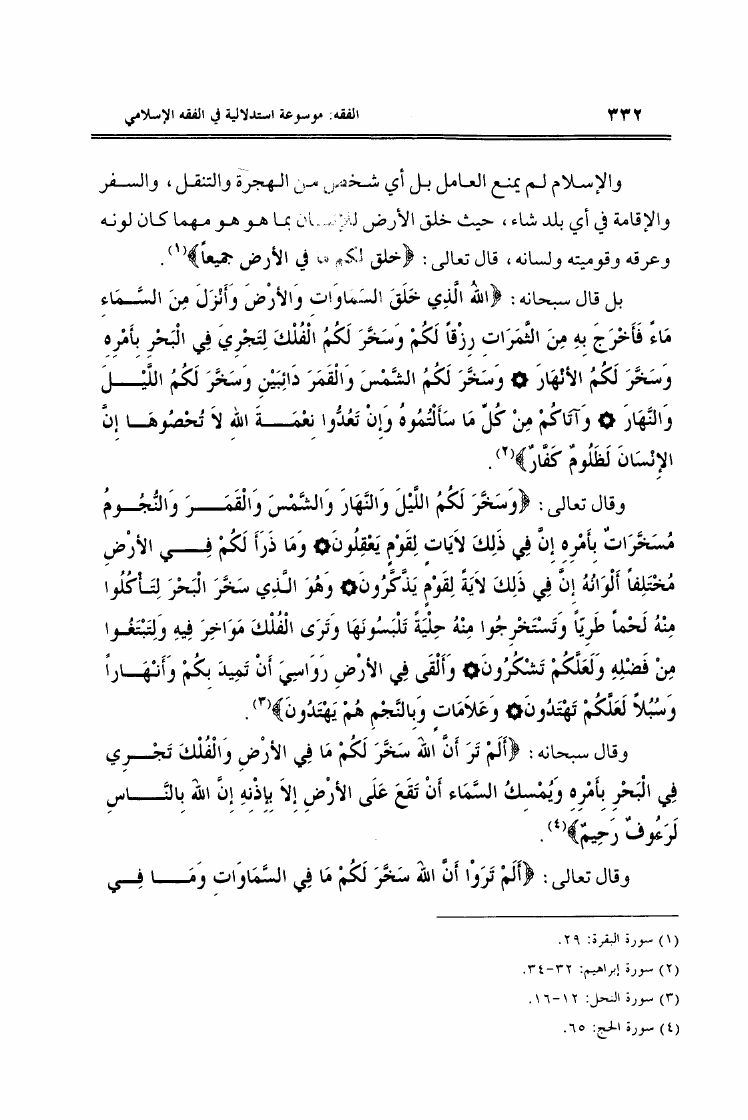 ٣٣٢
الفقه: موسوعة استدلالية في الفقه الإسلامي
والإسلام لم يمنع العامل بل أي شخص من الهجرة والتنقل، والسفر
والإقامة في أي بلد شاء، حيث خلق الأرض للإنسان بما هو هو مهما كان لونه
وعرقه وقوميته ولسانه، قال تعالى: ﴿خلق لكم ما في الأرض جميعاً﴾(١).
بل قال سبحانه: ﴿اللهُ الَّذِي خَلَقَ السَّمَاوَاتِ وَالأَرْضَ وَأَنْزَلَ مِنَ السَّمَاءِ
مَاءً فَأَخْرَجَ بِهِ مِنَ الثَّمَرَاتِ رِزْقاً لَكُمْ وَسَخَّرَ لَكُمُ الْفُلْكَ لِتَجْرِيَ فِي الْبَحْرِ بِأَمْرِهِ
وَسَخَّرَ لَكُمُ الأَنْهَارَ ۞ وَسَخَّرَ لَكُمُ الشَّمْسَ وَالْقَمَرَ دَائِبَيْنِ وَسَخَّرَ لَكُمُ اللَّيْلَ
وَالنَّهَارَ ۞ وَآتَاكُمْ مِنْ كُلِّ مَا سَأَلْتُمُوهُ وَإِنْ تَعُدُّوا نِعْمَةَ اللهِ لاَ تُحْصُوهَا إِنَّ
الإِنْسَانَ لَظَلُومٌ كَفَّارٌ﴾(٢).
وقال تعالى: ﴿وَسَخَّرَ لَكُمُ اللَّيْلَ وَالنَّهَارَ وَالشَّمْسَ وَالْقَمَرَ وَالنُّجُومُ
مُسَخَّرَاتٌ بِأَمْرِهِ إِنَّ فِي ذَلِكَ لآيَاتٍ لِقَوْمٍ يَعْقِلُونَ۞ وَمَا ذَرَأَ لَكُمْ فِي الأَرْضِ
مُخْتَلِفاً أَلْوَانُهُ إِنَّ فِي ذَلِكَ لآيَةً لِقَوْمٍ يَذَّكَّرُونَ۞ وَهُوَ الَّذِي سَخَّرَ الْبَحْرَ لِتَأْكُلُوا
مِنْهُ لَحْماً طَرِيّاً وَتَسْتَخْرِجُوا مِنْهُ حِلْيَةً تَلْبَسُونَهَا وَتَرَى الْفُلْكَ مَوَاخِرَ فِيهِ وَلِتَبْتَغُوا
مِنْ فَضْلِهِ وَلَعَلَّكُمْ تَشْكُرُونَ۞ وَأَلْقَى فِي الأَرْضِ رَوَاسِيَ أَنْ تَمِيدَ بِكُمْ وَأَنْهَاراً
وَسُبُلاً لَعَلَّكُمْ تَهْتَدُونَ۞ وَعَلاَمَاتٍ وَبِالنَّجْمِ هُمْ يَهْتَدُونَ﴾(٣).
وقال سبحانه: ﴿أَلَمْ تَرَ أَنَّ اللهَ سَخَّرَ لَكُمْ مَا فِي الأَرْضِ وَالْفُلْكَ تَجْرِي
فِي الْبَحْرِ بِأَمْرِهِ وَيُمْسِكُ السَّمَاءَ أَنْ تَقَعَ عَلَى الأَرْضِ إِلاَّ بِإِذْنِهِ إِنَّ اللهَ بِالنَّاسِ
لَرَءُوفٌ رَحِيمٌ﴾(٤).
وقال تعالى: ﴿أَلَمْ تَرَوْا أَنَّ اللهَ سَخَّرَ لَكُمْ مَا فِي السَّمَاوَاتِ وَمَا فِي
(١) سورة البقرة: ٢٩.
(٢) سورة إبراهيم: ٣٢-٣٤.
(٣) سورة النحل: ١٢-١٦.
(٤) سورة الحج: ٦٥.